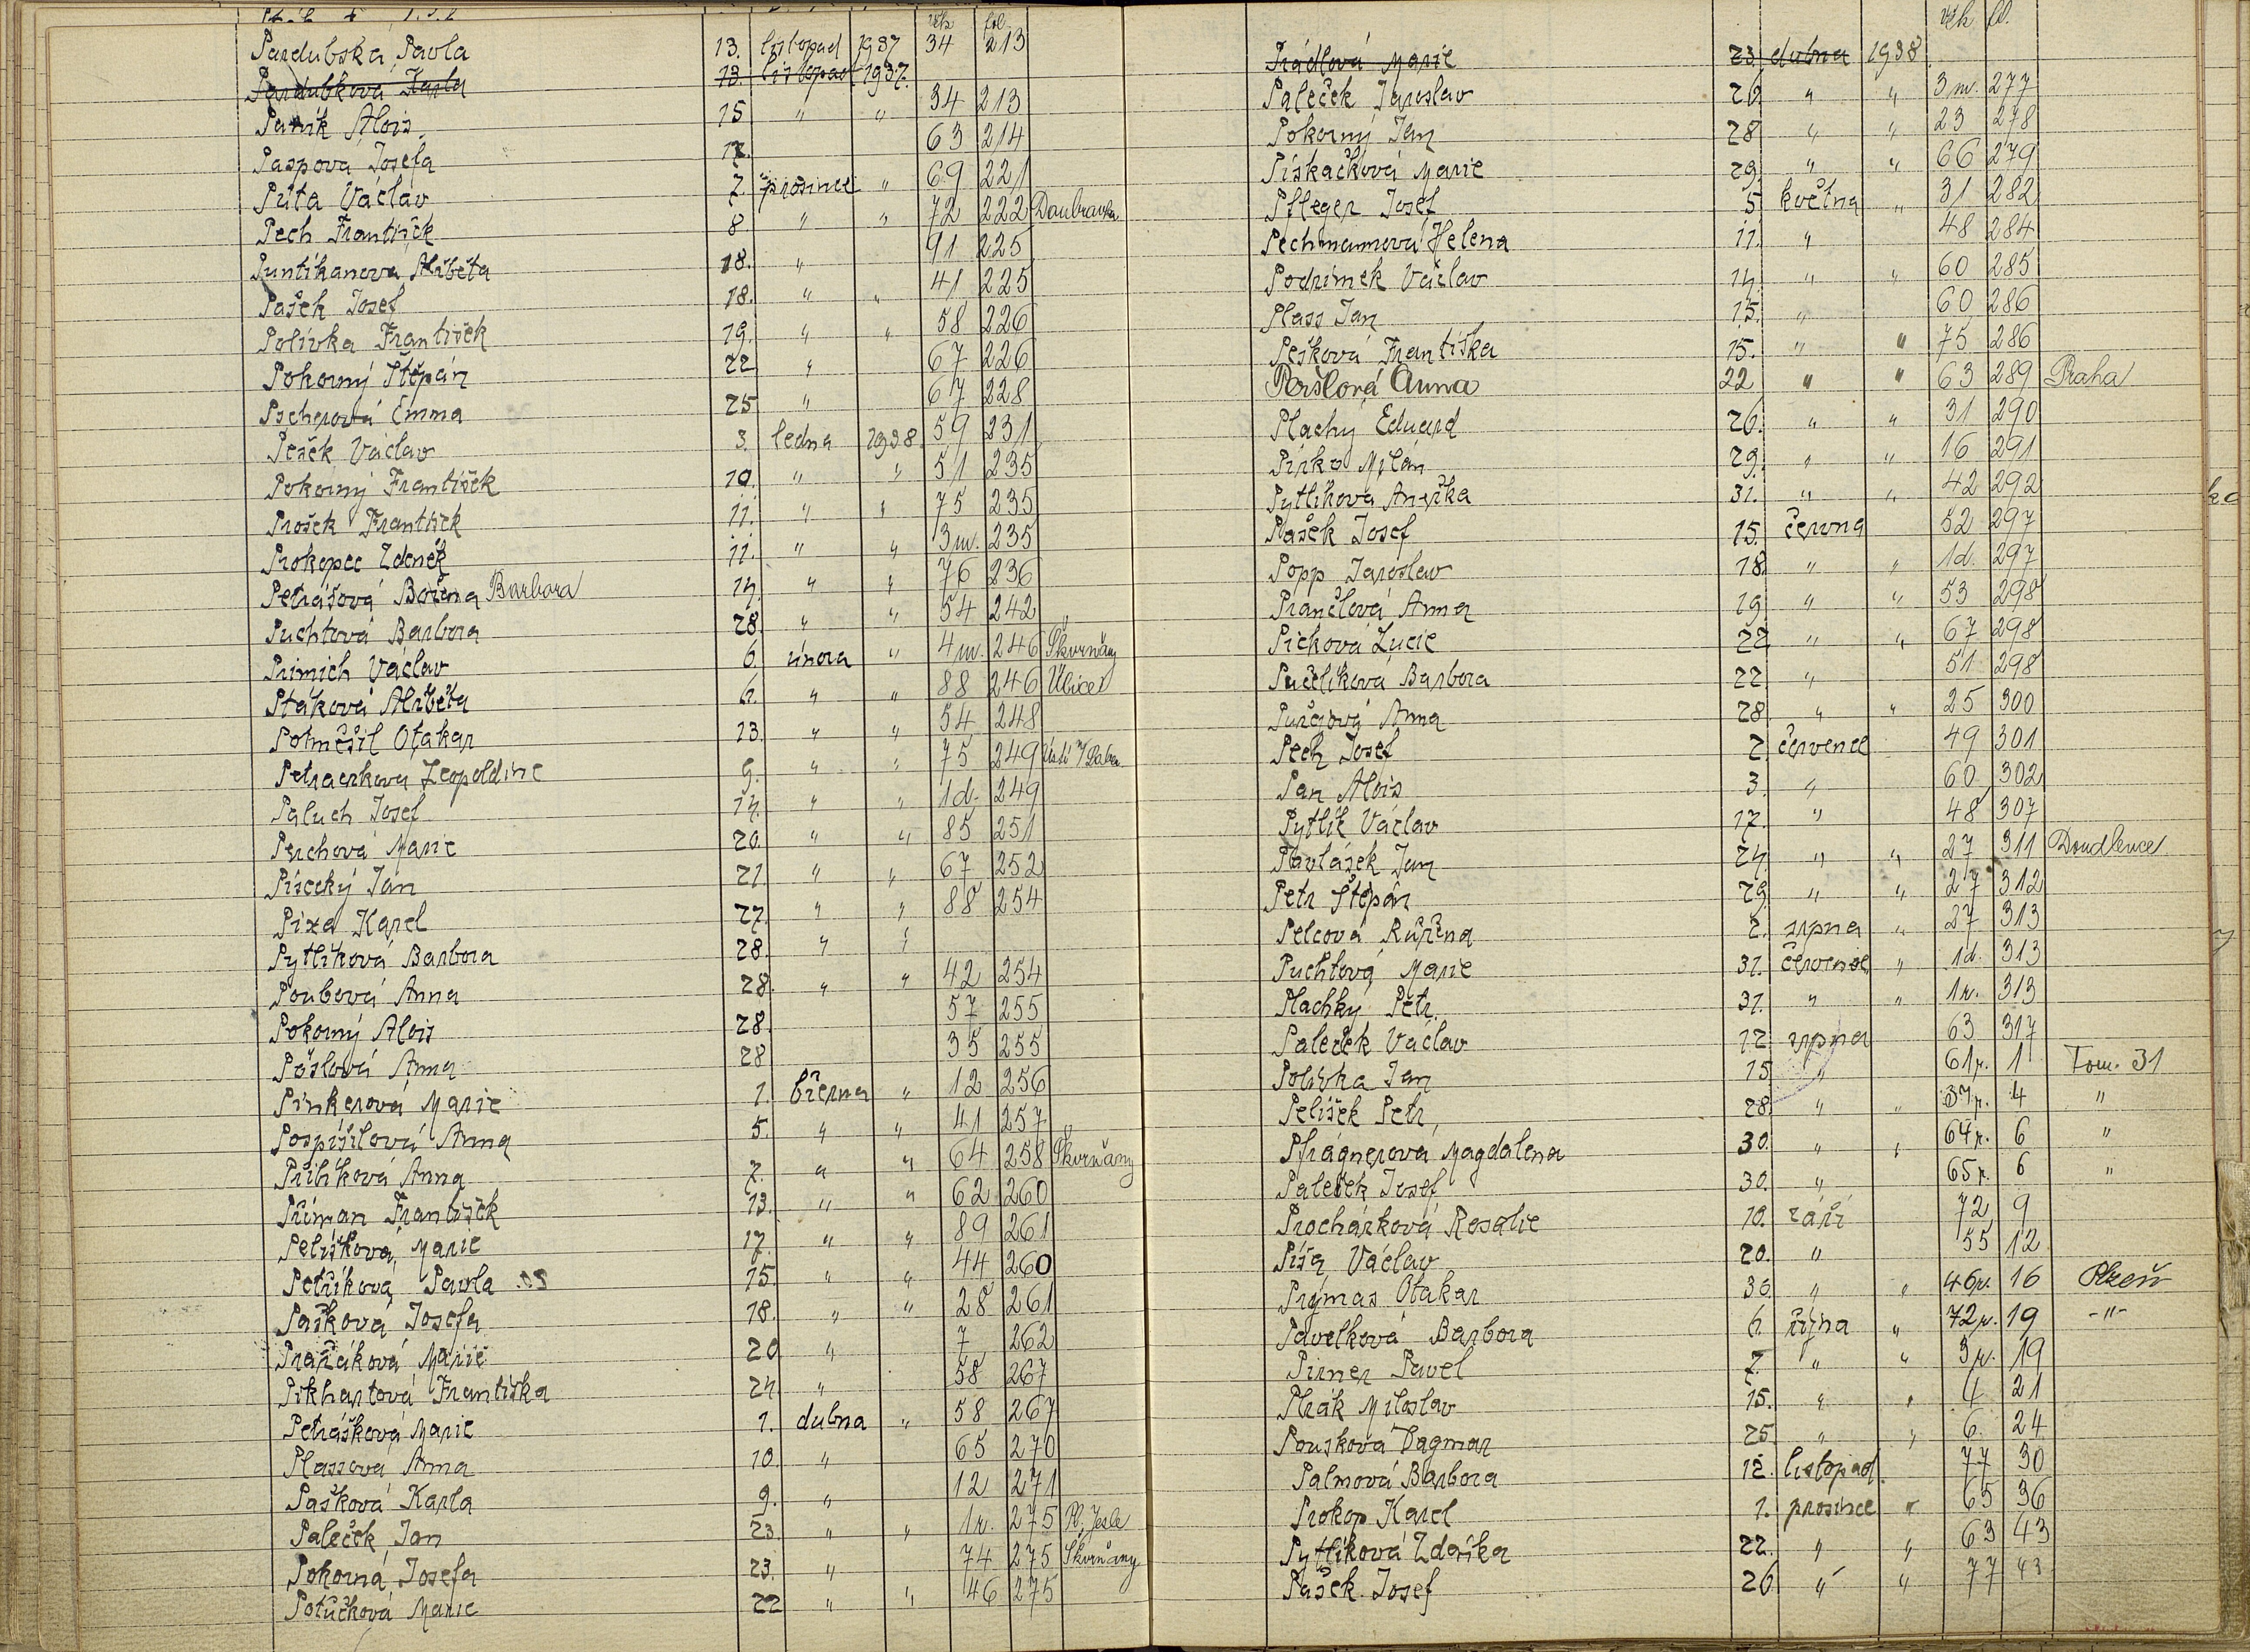 věk fol.
Pardubská Pavla 13. listopad 1937 34 213
Pardubková Karla 13. listopad 1937.
Paník Alois 15 " " 34 213
Paspova Josefa 17. 63 214
Půta Václav 7. prosince " 69 221
Pech František 8 " " 72 222 Doubravka
Puntikanova Alžběta 18. " 91 225
Pašek Josef 18. " " 41 225
Polívka František 19. " " 58 226
Pokorný Štěpán 22 " 67 226
Pscherová Emma 25 " 67 228
Pešek Václav 3. ledna 1938. 59 231
Pokorný František 10. " " 51 235
Prošek František 11. " " 75 235
Prokopec Zdeněk 11. " " 3 m. 235
Petrášová Božena Barbora 14. " " 76 236
Puchtová Barbora 28. " " 54 242
Primich Václav 6. února " 4 m. 246 Škvrňany
Ptáková Alžběta 6. " " 88 246 Úlice
Potměšil Otakar 13. " " 54 248
Petraczkova Leopoldine 9. " " 75 249 Ústí n/Labe
Paluch Josef 14. " " 1d. 249
Perchová Marie 20. " " 85 251
Písecký Jan 21. " " 67 252
Pixa Karel 27. " " 88 254
Pytlíková Barbora 28. " "
Poubová Anna 28. " " 42 254
Pokorný Alois 28. 57 255
Pöslová Anna 28 35 255
Pinkerová Marie 1. března " 12 256
Pospíšilová Anna 5. " " 41 257
Přibíková Anna 7. " " 64 258 Škvrňany
Příman František 13. " " 62 260
Pelíšková Marie 17. " " 89 261
Petříková Pavla 15. " " 44 260
Pašková Josefa 18. " " 28 261
Pražáková Marie 20 " 7 262
Pikhartová Františka 24 " 58 267
Petrášková Marie 1. dubna " 58 267
Plassová Anna 10. " 65 270
Pašková Karla 9. " 12 271
Paleček Jan 23. " " 1 r. 275 Pl. Jesle
Pokorná Josefa 23. " 74 275 Škvrňany
Potůčková Marie 22 " " 46 275
věk fol.
Prádlová Marie 23. dubna 1938
Paleček Jaroslav 26. " " 3 m. 277
Pokorný Jan 28 " " 23 278
Pískačková Marie 29. " " 66 279
Pfleger Josef 5 května " 31 282
Pechmannová Helena 11. " 48 284
Podzimek Václav 14. " " 60 285
Plass Jan 15. " 60 286
Pešková Františka 15. " " 75 286
Peršlová Anna 22 " " 63 289 Praha
Plachý Eduard 26. " " 31 290
Pirko Milan 29. " " 16 291
Pytlíková Anežka 31. " " 42 292
Plašek Josef 15. června 52 297
Popp Jaroslav 18. " " 1d. 297
Prančlová Anna 19 " " 53 298
Picková Lucie 22 " " 67 298
Pučelíková Barbora 22. " 51 298
Purčová Anna 28 " " 25 300
Pech Josef 2. července 49 301
Pan Alois 3. " 60 302
Pytlík Václav 17. " 48 307
Pavlásek Jan 24. " " 27 311 Doudlevce
Petr Štěpán 29 " " 27 312
Pelcová Růžena 2. srpna " 27 313
Puchtová Marie 31. července " 1d. 313
Plachký Petr. 31. " " 1 r. 313
Paleček Václav 12 srpna 63 317
Polívka Jan 15 " 61 r. 1 Tom. 31
Pelíšek Petr, 28. " " 37 r. 4 "
Pfrágnerová Magdalena 30. " " 64 r. 6 "
Paleček Josef 30. " 65 r. 6 "
Procházková Rosalie 10. září 72 9
Píša Václav 20. " 55 12
Prýmas Otakar 30. " " 46 r. 16 Plzeň
Pavelková Barbora 6. října " 72 r. 19 -"-
Pirner Pavel 7. " " 3 r. 19
Pták Miloslav 15. " " 4 21
Pousková Dagmar 25. " " 6. 24
Palmová Barbora 12. listopad. 77 30
Prokop Karel 1. prosince " 65 36
Pytlíková Zdeňka 22. " " 63 43
Pašek Josef 26 " " 77 43